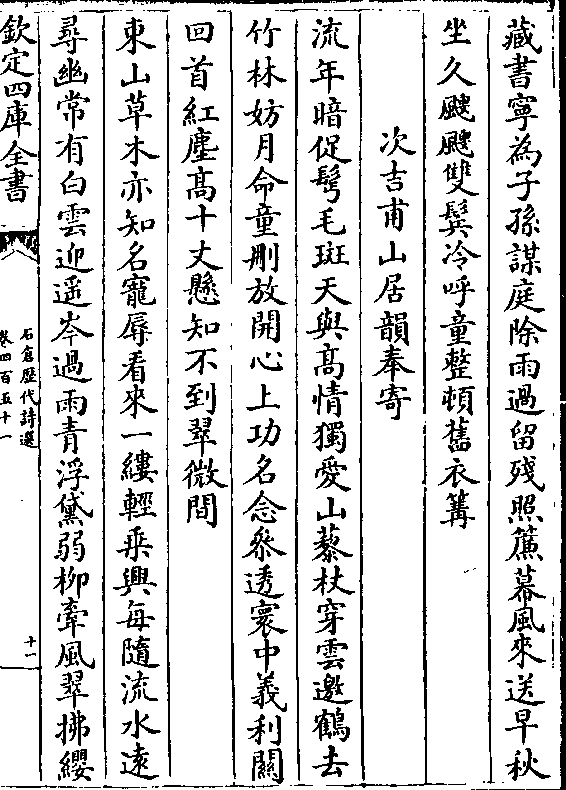 藏書寧為子孫謀庭除雨過留殘照簾幕風來送早秋
坐久颼颼雙鬂冷呼童整頓舊衣篝
次吉甫山居韻奉寄
流年暗促髩毛斑天與髙情獨愛山藜杖穿雲邀鶴去
竹林妨月命童刪放開心上功名念叅透寰中義利關
回首紅塵髙十丈懸知不到翠微間
東山草木亦知名寵辱看來一縷輕乘興每隨流水逺
尋幽常有白雲迎遥岑過雨青浮黛弱栁牽風翠拂纓
欽定四庫全書
石倉歴代詩選
卷四百五十一
十一